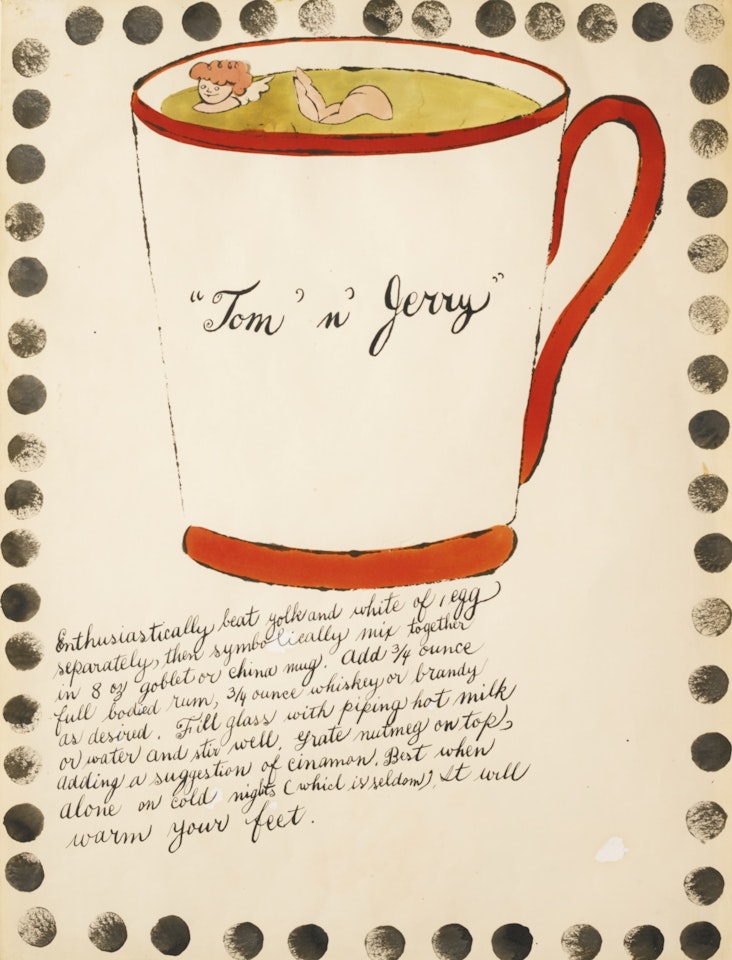 "Tom 'n' Jerry"
Enthusiastically beat yolk and white of 1 egg
separately, then symbolically mix together
in 8 oz goblet or china mug. Add 3/4 ounce
full bodied rum, 3/4 ounce whiskey or brandy
as desired. Fill glass with piping hot milk
or water and stir well. Grate nutmeg on top,
adding a suggestion of cinamon. Best when
alone on cold nights (which is seldom). It will
warm your feet.